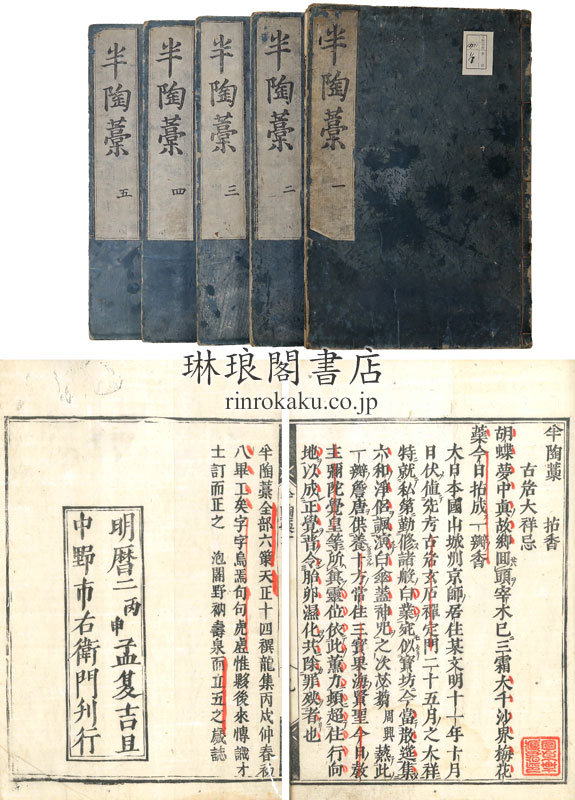 半陶藁
一
半陶藁
二
半陶藁
三
半陶藁
四
半陶藁
五
琳琅閣書店
rinrokaku.co.jp
半陶藁 拈香
古岩大祥忌
胡蝶夢中真故郷回頭宰木已三霜大千沙界梅花
藥今日拈成一瓣香
大日本國山城州京師居住某文明十一年十月
日伏値先考古岩玄石禪定門二十五月之大祥
特就私第勤修諸般白業宛似寶坊今當散筵集
六和淨侶諷演白傘蓋神咒之次苾蒭周興爇此
一瓣詹唐供養十方常住三寶果海賢聖今日教
主彌陀覺皇等所冀靈位依此薫力頓超住行向
地以成正覺普令胎卵濕化共除罪
者也
半陶藁全部六策天正十四禩龍集丙戌仲春初
八畢工矣字字烏焉句句虎虚惟夥後來博識才
士訂而正之 泡閣野衲壽泉而立五之歳誌
明暦二丙申孟夏吉旦
中野市右衛門刊行